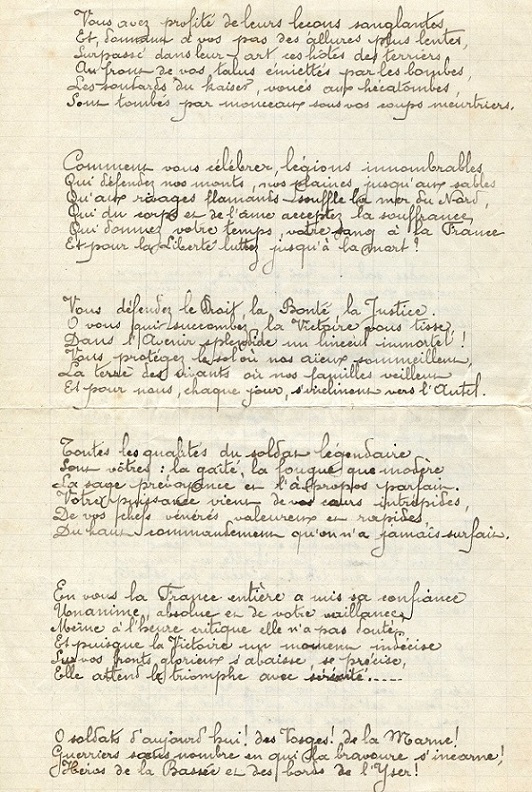 Vous avez profité de leurs leçons sanglantes,
Et, donnant à vos pas des allures plus lentes,
Surpassé dans leur art ces hôtes des terriers.
Au front de vos talus émiettés par les bombes,
Les soudards du kaiser, voués aux hécatombes,
Sont tombés par monceaux sous vos coups meurtriers.
Comment vous célébrer, légions innombrables
Qui défendez nos monts, nos plaines jusqu'aux sables
Qu'aux rivages flamands souffle la mer du Nord,
Qui du corps et de l'âme acceptez la souffrance,
Qui donnez votre temps, votre sang à la France
Et pour la Liberté luttez jusqu'à la mort!
Vous défendez le Droit, la Bonté, la Justice.
O vous qui succombez, la Victoire vous tisse,
Dans l'Avenir splendide un linceul immortel!
Vous protégez le sol où nos aïeux sommeillent,
La terre des vivants où nos familles veillent
Et pour nous, chaque jour, s'inclinent vers l'Autel.
Toutes les qualités du soldat légendaire
Sont vôtres: la gaîté, la fougue que modère
La sage prévoyance et l'à-propos parfait.
Votre puissance vient de vos cœurs intrépides,
De vos chefs vénérés valeureux et rapides
Du haut commandement qu'on n'a jamais surfait.
En vous la France entière a mis sa confiance
Unanime, absolue et de votre vaillance,
Même à l'heure critique elle n'a pas douté,
Et puisque la Victoire un moment indécise
Sur vos fronts glorieux s'abaisse, se précise,
Elle attend le triomphe avec sérénité.....
O soldats d'aujourd'hui! des Vosges! de la Marne!
Guerriers sans nombre en qui la bravoure s'incarne!
Héros de la Bassée et des bords de l'Yser!